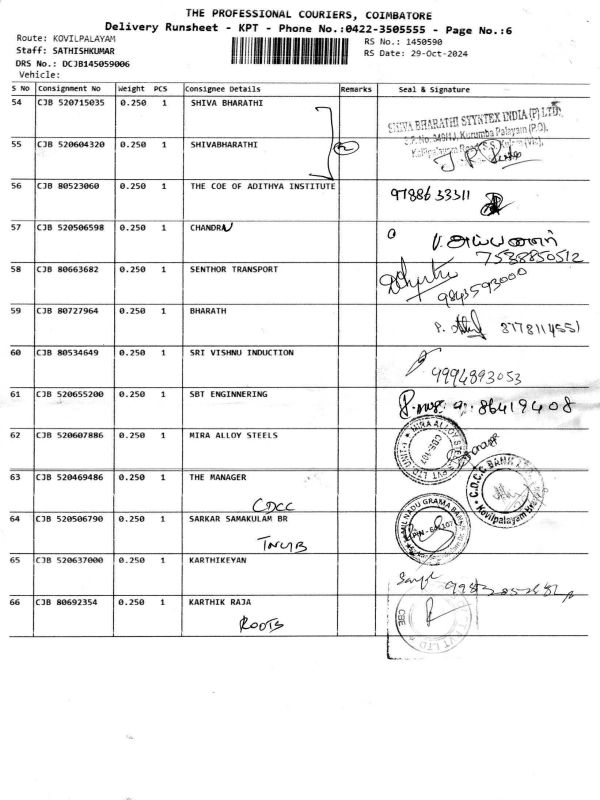 THE PROFESSIONAL COURIERS, COIMBATORE
Delivery Runsheet - KPT - Phone No.:0422-3505555 - Page No.:6
Route: KOVILPALAYAM
RS No.: 1450590
Staff: SATHISHKUMAR
RS Date: 29-Oct-2024
DRS No.: DCJB145059006
Vehicle:
S No Consignment No Weight PCS Consignee Details Remarks Seal & Signature
54 CJB 520715035 0.250 1 SHIVA BHARATHI
SHIVA BHARATHI SYNTEX INDIA (P) LTD
S.F.No. 949/1J, Kurumba Palayam (P.O),
55 CJB 520604320 0.250 1 SHIVABHARATHI 2
56 CJB 80523060 0.250 1 THE COE OF ADITHYA INSTITUTE 9788633311
57 CJB 520506598 0.250 1 CHANDRN
7538850512
58 CJB 80663682 0.250 1 SENTHOR TRANSPORT
9843593000
59 CJB 80727964 0.250 1 BHARATH
60 CJB 80534649 0.250 1 SRI VISHNU INDUCTION
4994893053
61 CJB 520655200 0.250 1 SBT ENGINNERING
86419408
62 CJB 520607886 0.250 1 MIRA ALLOY STEELS MIRA ALLOY STEELS PVT LTD. UNIT-1
63 CJB 520469486 0.250 1 THE MANAGER
C.D.C.C BANK
Kovilpalayam
CDCC
64 CJB 520506790 0.250 1 SARKAR SAMAKULAM BR
TAMILNADU GRAMA BANK
TNGB
65 CJB 520637000 0.250 1 KARTHIKEYAN
66 CJB 80692354 0.250 1 KARTHIK RAJA
ROOTS
CBE
PVT LTD